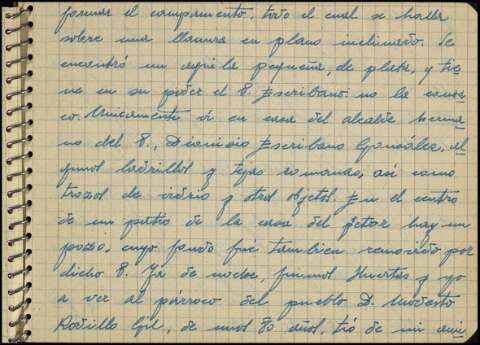 formar el campamento, todo el cual se halla
sobre una llanura en plano inclinado. Se
encontró un aguila pequeña, de plata, y tie-
ne en su poder el P. Escribano: no la conoz-
co. Unicamente vi en casa del alcalde herma-
no del P., Dionisio Escribano González, al-
gunos ladrillos y tejas romanas, así como
trozos de vidrio y otros objetos. En el centro
de un patio de la casa del hay un
pozo, cuyo fondo fué tambien removido por
dicho P. Ya de noche, fuimos Huertas y yo
a ver al párroco del pueblo D. Modesto
Gil, de unos 80 años, tío de mi ami-